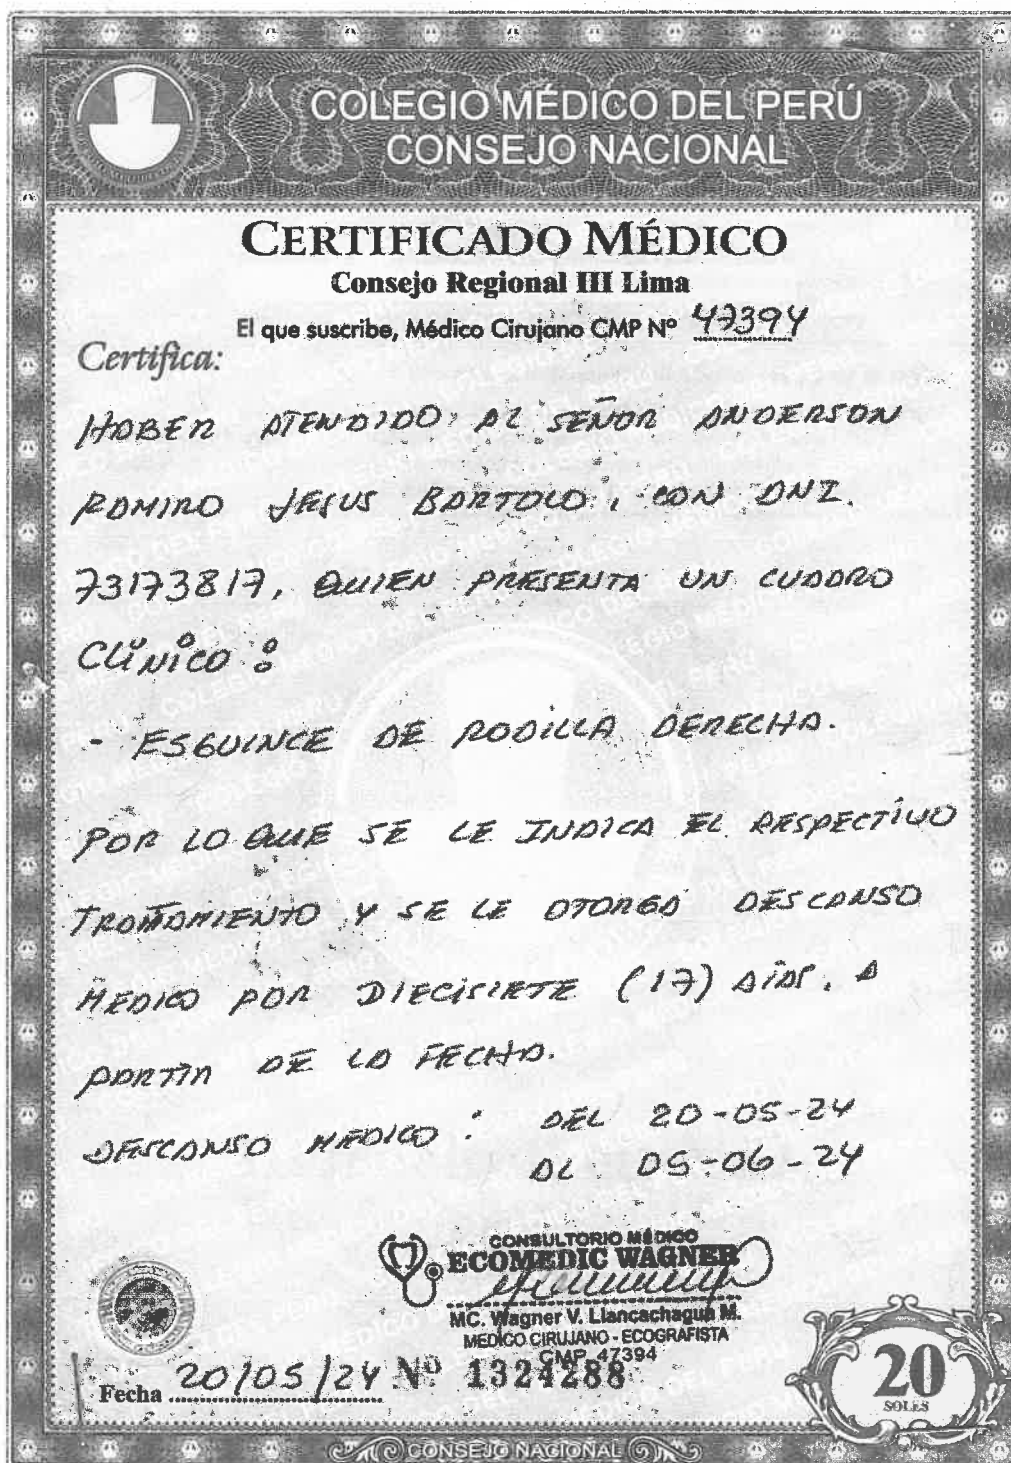 COLEGIO MÉDICO DEL PERÚ
CONSEJO NACIONAL
CERTIFICADO MÉDICO
Consejo Regional III Lima
El que suscribe, Médico Cirujano CMP Nº 47394
Certifica:
HABER ATENDIDO AL SEÑOR ANDERSON
RAMIRO JESUS BARTOLO, CON DNI.
73173817, QUIEN PRESENTA UN CUADRO
CLÍNICO:
- ESGUINCE DE RODILLA DERECHA.
POR LO QUE SE LE INDICA EL RESPECTIVO
TRATAMIENTO Y SE LE OTORGA DESCANSO
MEDICO POR DIECISIETE (17) DÍAS, A
PARTIR DE LA FECHA.
DESCANSO MEDICO: DEL 20-05-24
AL 05-06-24
CONSULTORIO MÉDICO
ECOMEDIC WAGNER
MC. Wagner V. Llancachagua M.
MEDICO CIRUJANO - ECOGRAFISTA
CMP 47394
Fecha 20/05/24 Nº 1324288
20
SOLES
CONSEJO NACIONAL